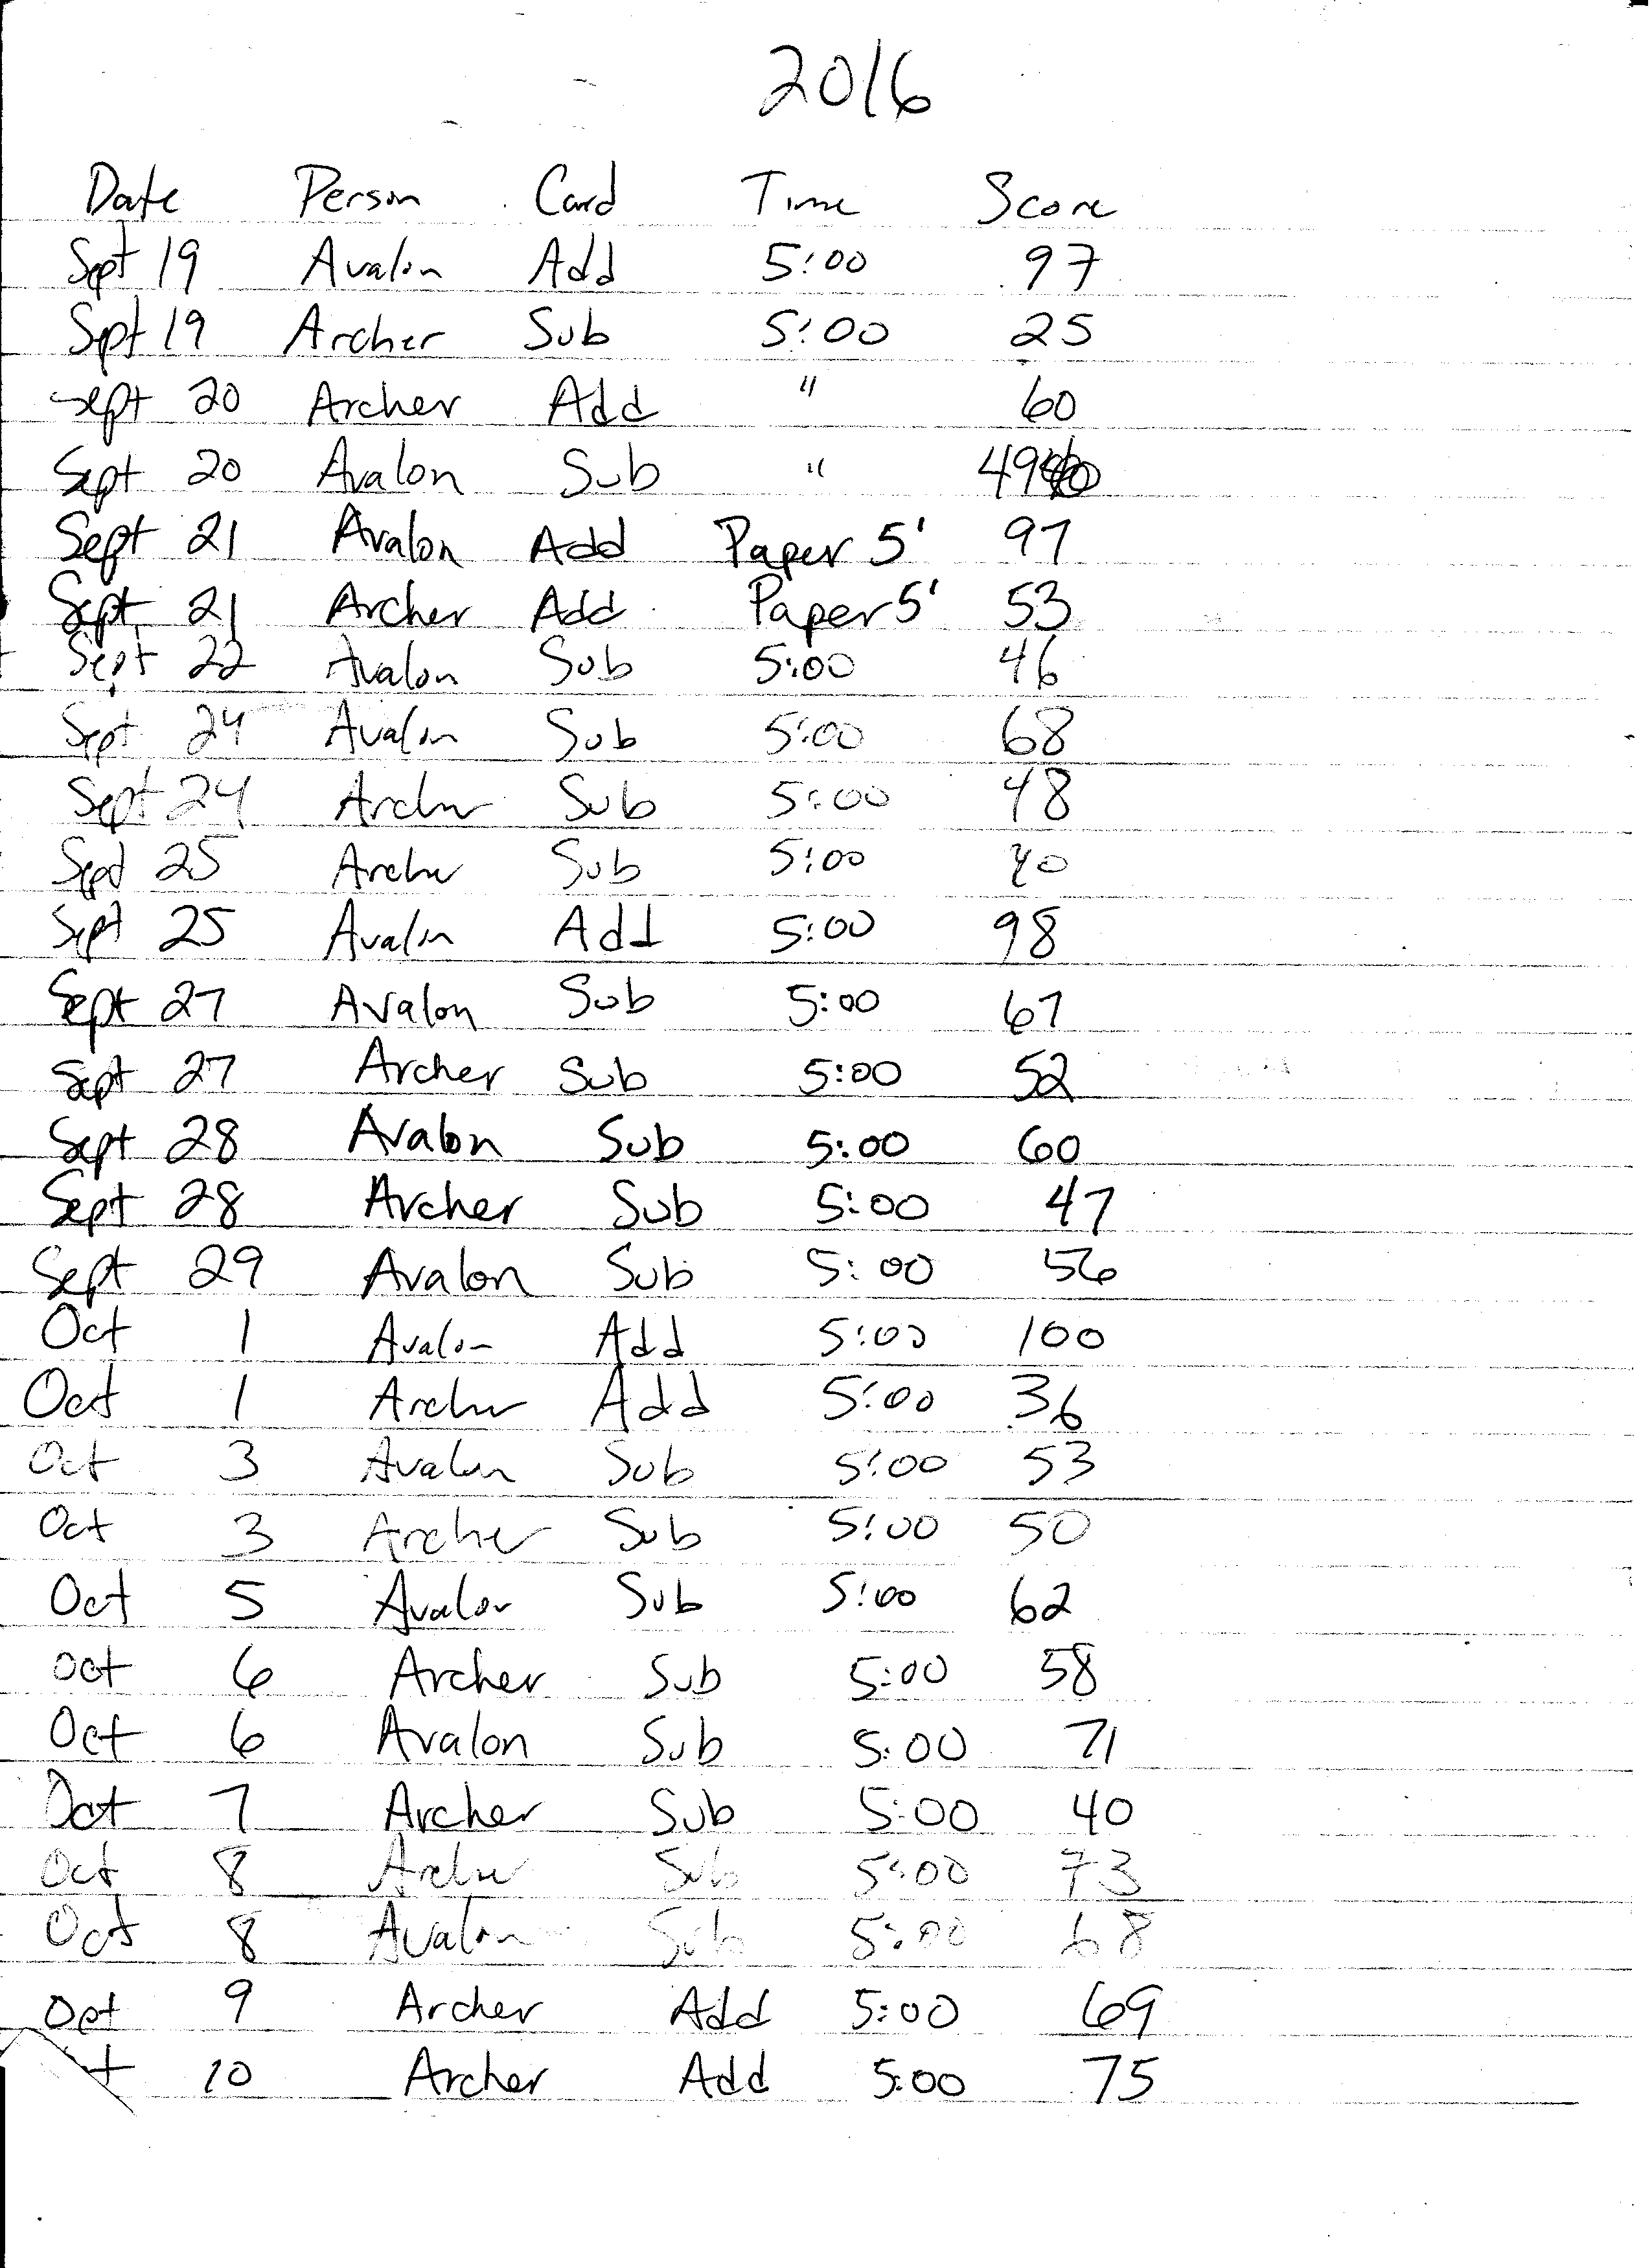 2016
Date Person Card Time Score
Sept 19 Avalon Add 5:00 97
Sept 19 Archer Sub 5:00 25
Sept 20 Archer Add " 60
Sept 20 Avalon Sub " 49
Sept 21 Avalon Add Paper 5' 97
Sept 21 Archer Add Paper 5' 53
Sept 22 Avalon Sub 5:00 46
Sept 24 Avalon Sub 5:00 68
Sept 24 Archer Sub 5:00 48
Sept 25 Archer Sub 5:00
Sept 25 Avalon Add 5:00 98
Sept 27 Avalon Sub 5:00 67
Sept 27 Archer Sub 5:00 52
Sept 28 Avalon Sub 5:00 60
Sept 28 Archer Sub 5:00 47
Sept 29 Avalon Sub 5:00 56
Oct 1 Avalon Add 5:00 100
Oct 1 Archer Add 5:00 36
Oct 3 Avalon Sub 5:00 53
Oct 3 Archer Sub 5:00 50
Oct 5 Avalon Sub 5:00 62
Oct 6 Archer Sub 5:00 58
Oct 6 Avalon Sub 5:00 71
Oct 7 Archer Sub 5:00 40
Oct 8 Archer Sub 5:00 73
Oct 8 Avalon Sub 5:00 68
Oct 9 Archer Add 5:00 69
t 10 Archer Add 5:00 75